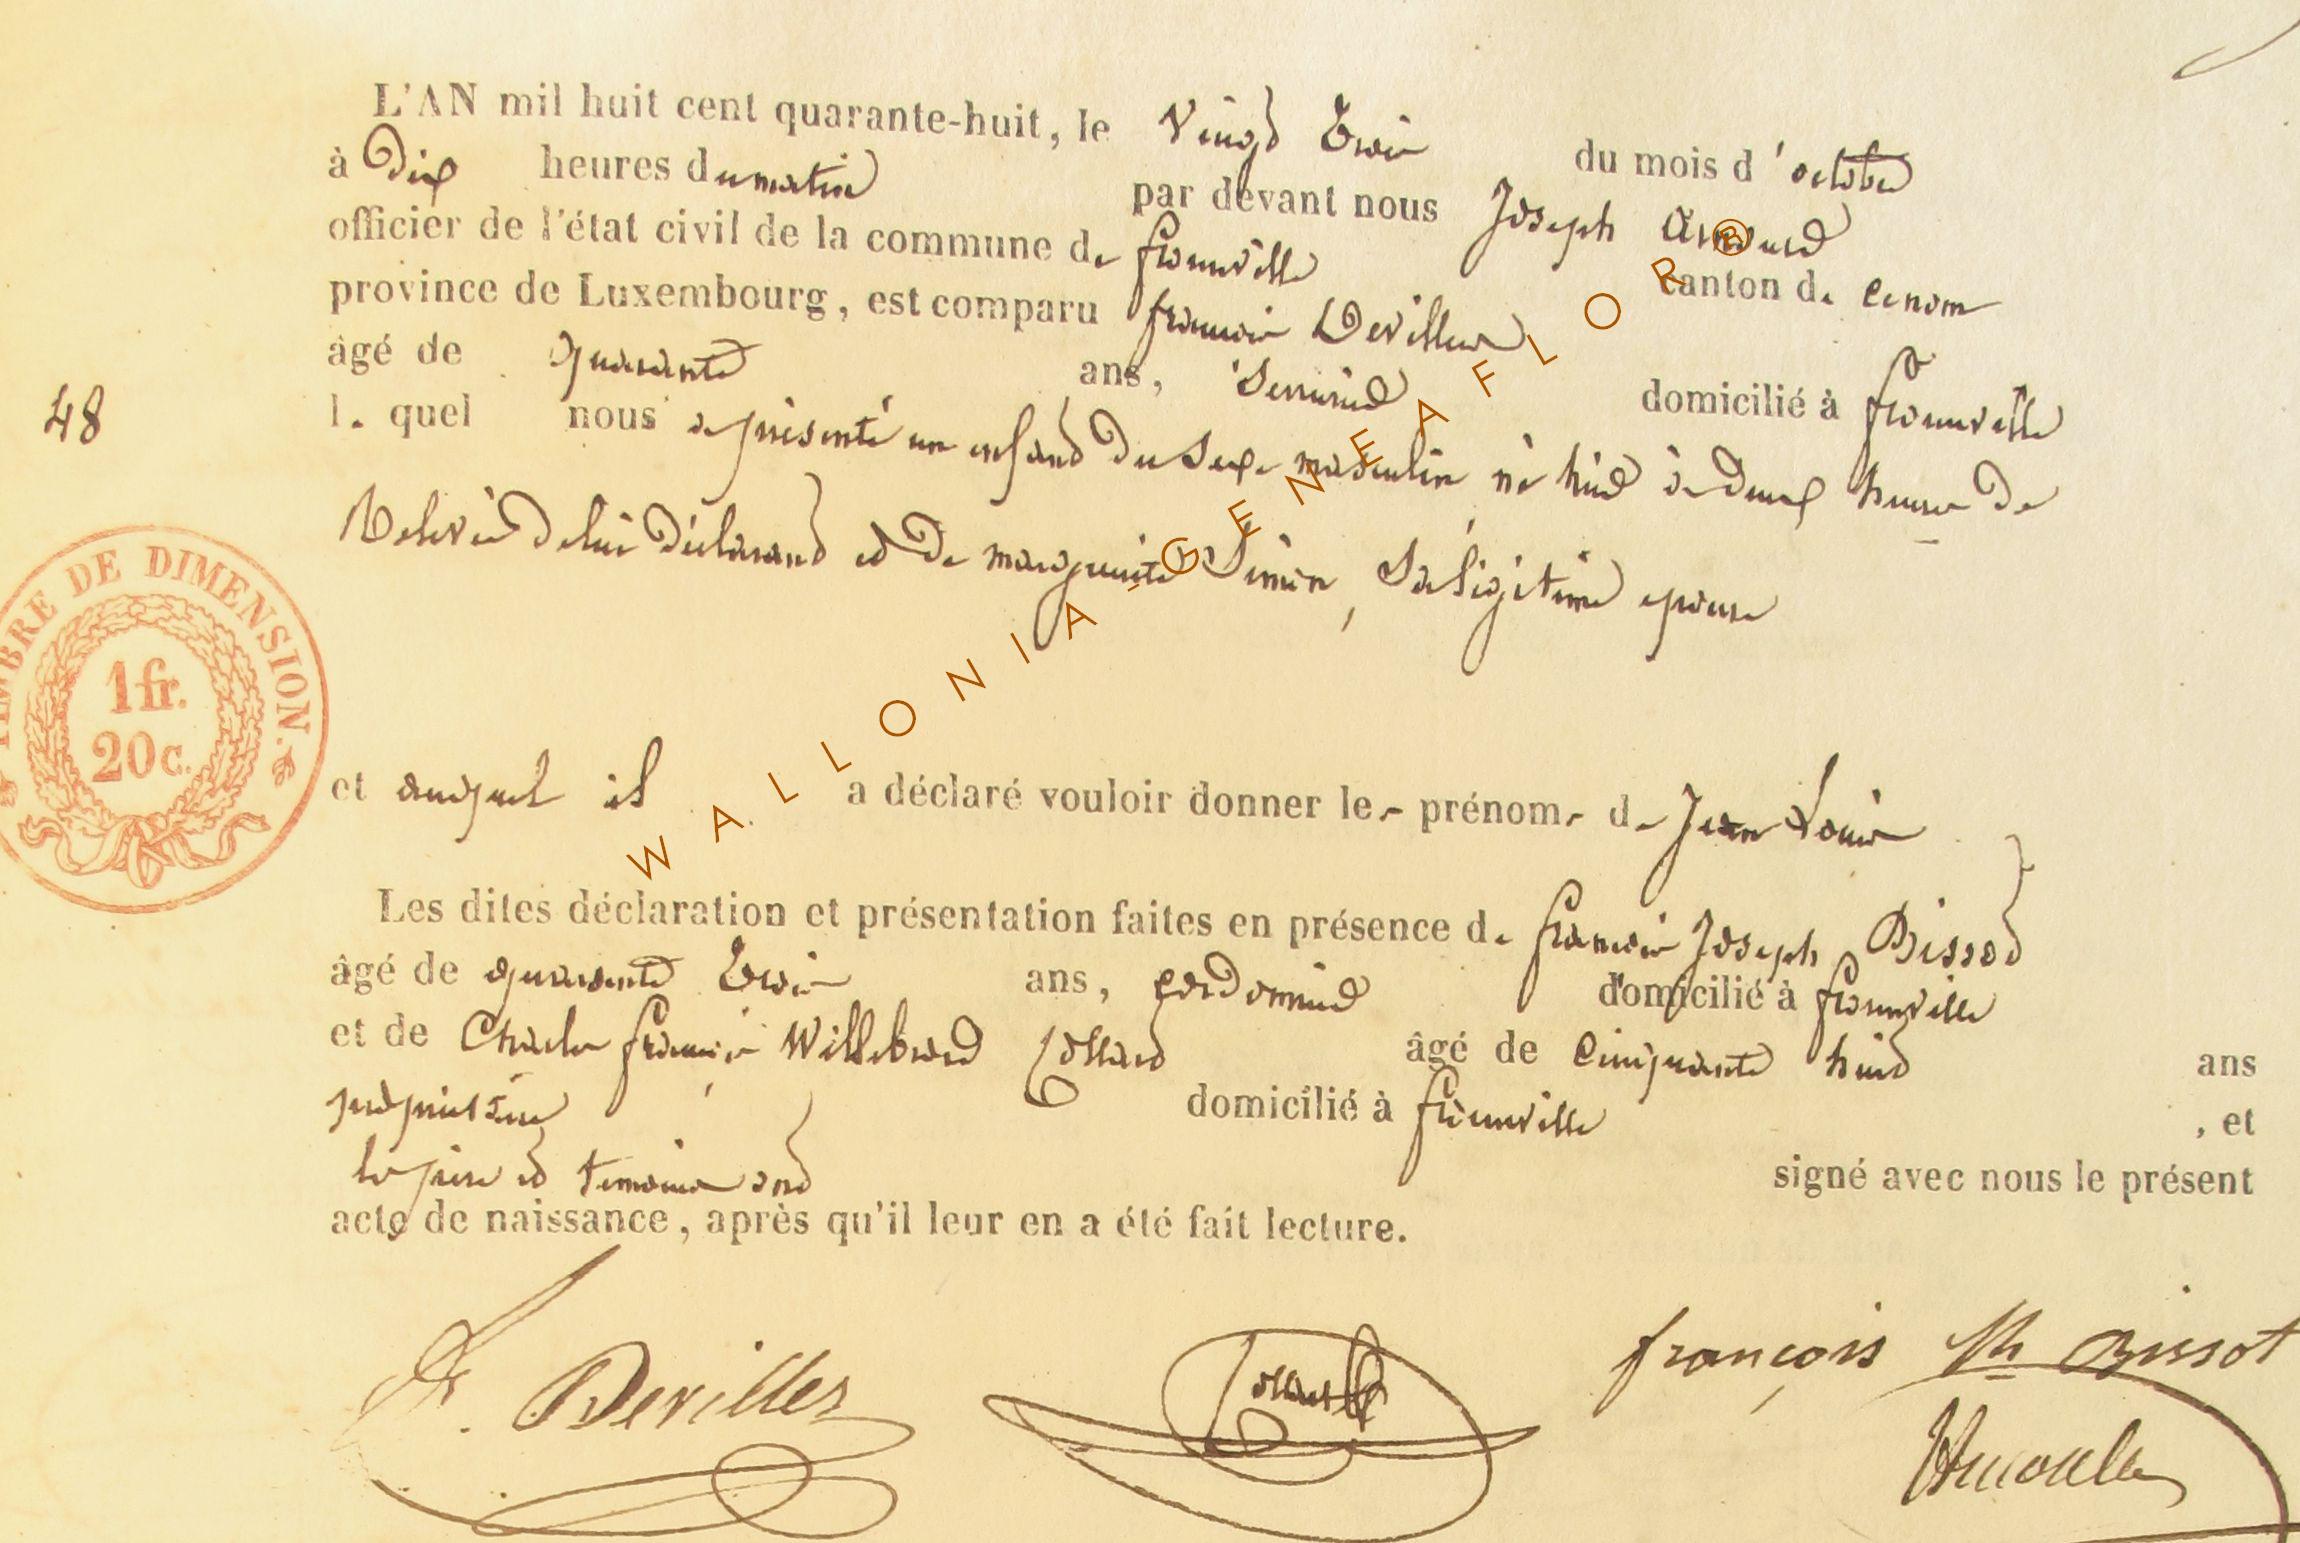 L'AN mil huit cent quarante-huit, le vingt trois du mois d'octobre
à dix heures du matin par devant nous Joseph Arnould
officier de l'état civil de la commune de frenneville canton de
province de Luxembourg, est comparu francois Devilles
âgé de quarante ans, serrurier domicilié à
le quel nous a présenté un enfant du sexe masculin né hier à deux heures de
relevée de lui déclarant et de marguerite Simon, sa légitime epouse
48
TIMBRE DE DIMENSION.
1 fr.
20 c.
et auquel il a déclaré vouloir donner les prénoms de Jean Louis
Les dites déclaration et présentation faites en présence de francois Joseph Bissot
âgé de quarante trois ans, cordonnier domicilié à
et de Charles francois Willebrord Collard âgé de cinquante huit ans
domicilié à , et
les père et temoins ont signé avec nous le présent
acte de naissance, après qu'il leur en a été fait lecture.
F. Devilles
Collard
françois Jh Bissot
WALLONIA-GENEAFLOR®